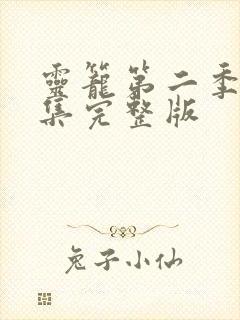 靈籠第二季
集完整版
兔子小仙